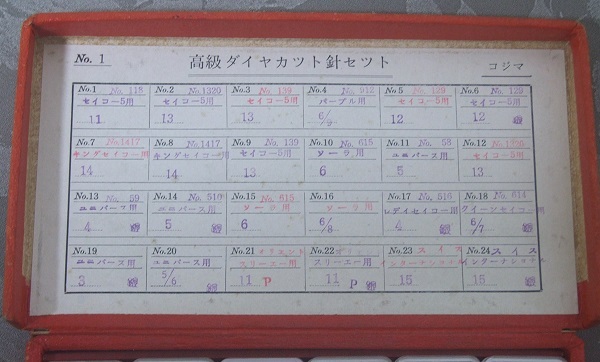 No. 1 高級ダイヤカット針セット コジマ
No.1 No. 118 No.2 No. 1320 No.3 No. 139 No.4 No. 912 No.5 No. 129 No.6 No. 129
セイコー5用 セイコー5用 セイコー5用 パーブル用 セイコー5用 セイコー5用
11 13 13 6/9 12 12
No.7 No.1417 No.8 No.1417 No.9 No. 139 No.10 No. 615 No.11 No. 58 No.12
キングセイコー用 キングセイコー用 セイコー5用 ソーラ用 ユニバース用 セイコー5用
14 14 13 6 5 13
No.13 No. 59 No.14 No. 510 No.15 No. 615 No.16 No.17 No. 510 No.18 No. 614
ユニバース用 ユニバース用 ソーラ用 ソーラ用 レディセイコー用 クイーンセイコー用
4 5 6 6/8 4 6/7
No.19 No.20 No.21 オリエント No.22 No.23 スイス No.24 スイス
ユニバース用 ユニバース用 スリーニー用 スリーニー用 インターナショナル インターナショナル
3 5/6 11 P 11 P 15 15